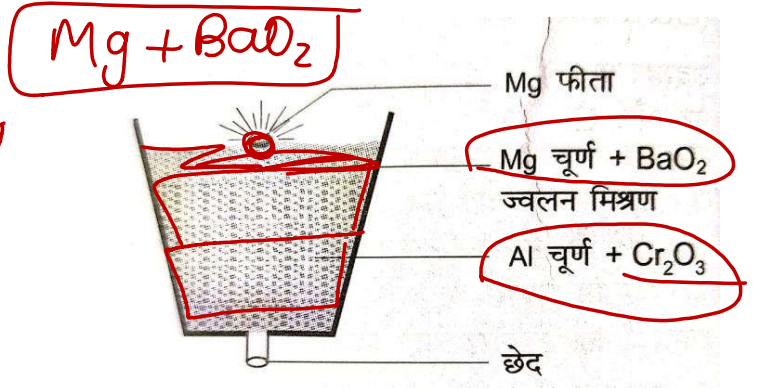 Mg + BaO₂
Mg फीता
Mg चूर्ण + BaO₂
ज्वलन मिश्रण
Al चूर्ण + Cr₂O₃
छेद